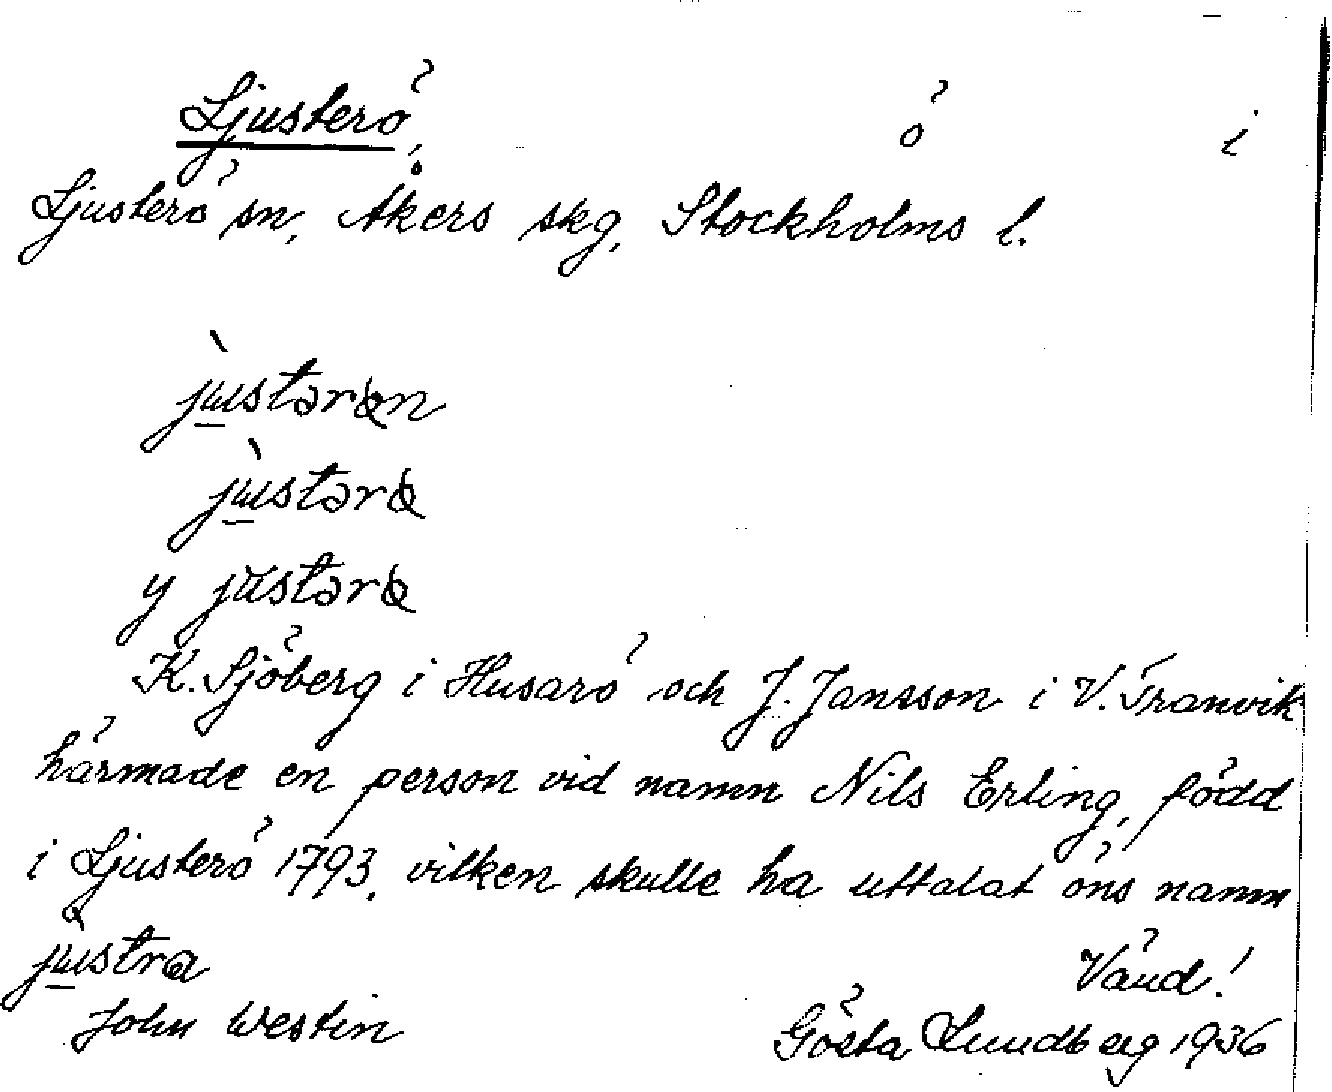 Ljusterö, ö i
Ljusterö sn, Åkers skg, Stockholms l.
jùstərɷn
jùstərɷ
y jùstərɷ
K. Sjöberg i Husarö och J. Jansson i V. Tranvik
härmade en person vid namn Nils Erling, född
i Ljusterö 1793, vilken skulle ha uttalat öns namn
jùstra Vänd!
John Westin Gösta Lundberg 1936